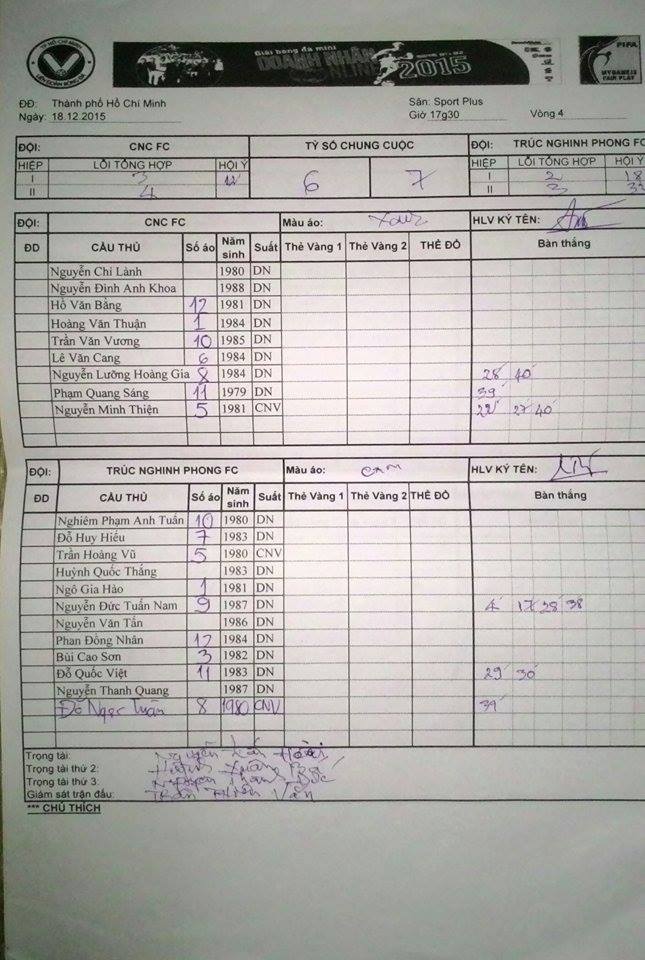 TP HỒ CHÍ MINH
LIÊN ĐOÀN BÓNG ĐÁ
Giải bóng đá mini
DOANH NHÂN
ONLINE
2015
FIFA
MY GAME IS
FAIR PLAY
ĐĐ: Thành phố Hồ Chí Minh Sân: Sport Plus
Ngày: 18.12.2015 Giờ 17g30 Vòng 4
ĐỘI: CNC FC TỶ SỐ CHUNG CUỘC ĐỘI: TRÚC NGHINH PHONG FC
HIỆP LỖI TỔNG HỢP HỘI Ý 6 7 HIỆP LỖI TỔNG HỢP HỘI Ý
I 3 12 I 2 18
II 4 II 3
ĐỘI: CNC FC Màu áo: HLV KÝ TÊN:
ĐD CẦU THỦ Số áo Năm sinh Suất Thẻ Vàng 1 Thẻ Vàng 2 THẺ ĐỎ Bàn thắng
Nguyễn Chí Lành 1980 DN
Nguyễn Đình Anh Khoa 1988 DN
Hồ Văn Bằng 12 1981 DN
Hoàng Văn Thuận 1 1984 DN
Trần Văn Vương 10 1985 DN
Lê Văn Cang 6 1984 DN
Nguyễn Lưỡng Hoàng Gia 8 1984 DN 28' 40'
Phạm Quang Sáng 11 1979 DN 39'
Nguyễn Minh Thiện 5 1981 CNV 22' 27' 40'
ĐỘI: TRÚC NGHINH PHONG FC Màu áo: cam HLV KÝ TÊN:
ĐD CẦU THỦ Số áo Năm sinh Suất Thẻ Vàng 1 Thẻ Vàng 2 THẺ ĐỎ Bàn thắng
Nghiêm Phạm Anh Tuấn 10 1980 DN
Đỗ Huy Hiếu 7 1983 DN
Trần Hoàng Vũ 5 1980 CNV
Huỳnh Quốc Thắng 1983 DN
Ngô Gia Hào 1 1981 DN
Nguyễn Đức Tuấn Nam 9 1987 DN 4' 17' 28' 38'
Nguyễn Văn Tấn 1986 DN
Phan Đồng Nhân 12 1984 DN
Bùi Cao Sơn 3 1982 DN
Đỗ Quốc Việt 11 1983 DN 29' 30'
Nguyễn Thanh Quang 1987 DN
Đỗ Ngọc Tuấn 8 1980 CNV 39'
Trọng tài: Nguyễn
Trọng tài thứ 2: Xuân
Trọng tài thứ 3: Nguyễn
Giám sát trận đấu: Trần
*** CHÚ THÍCH